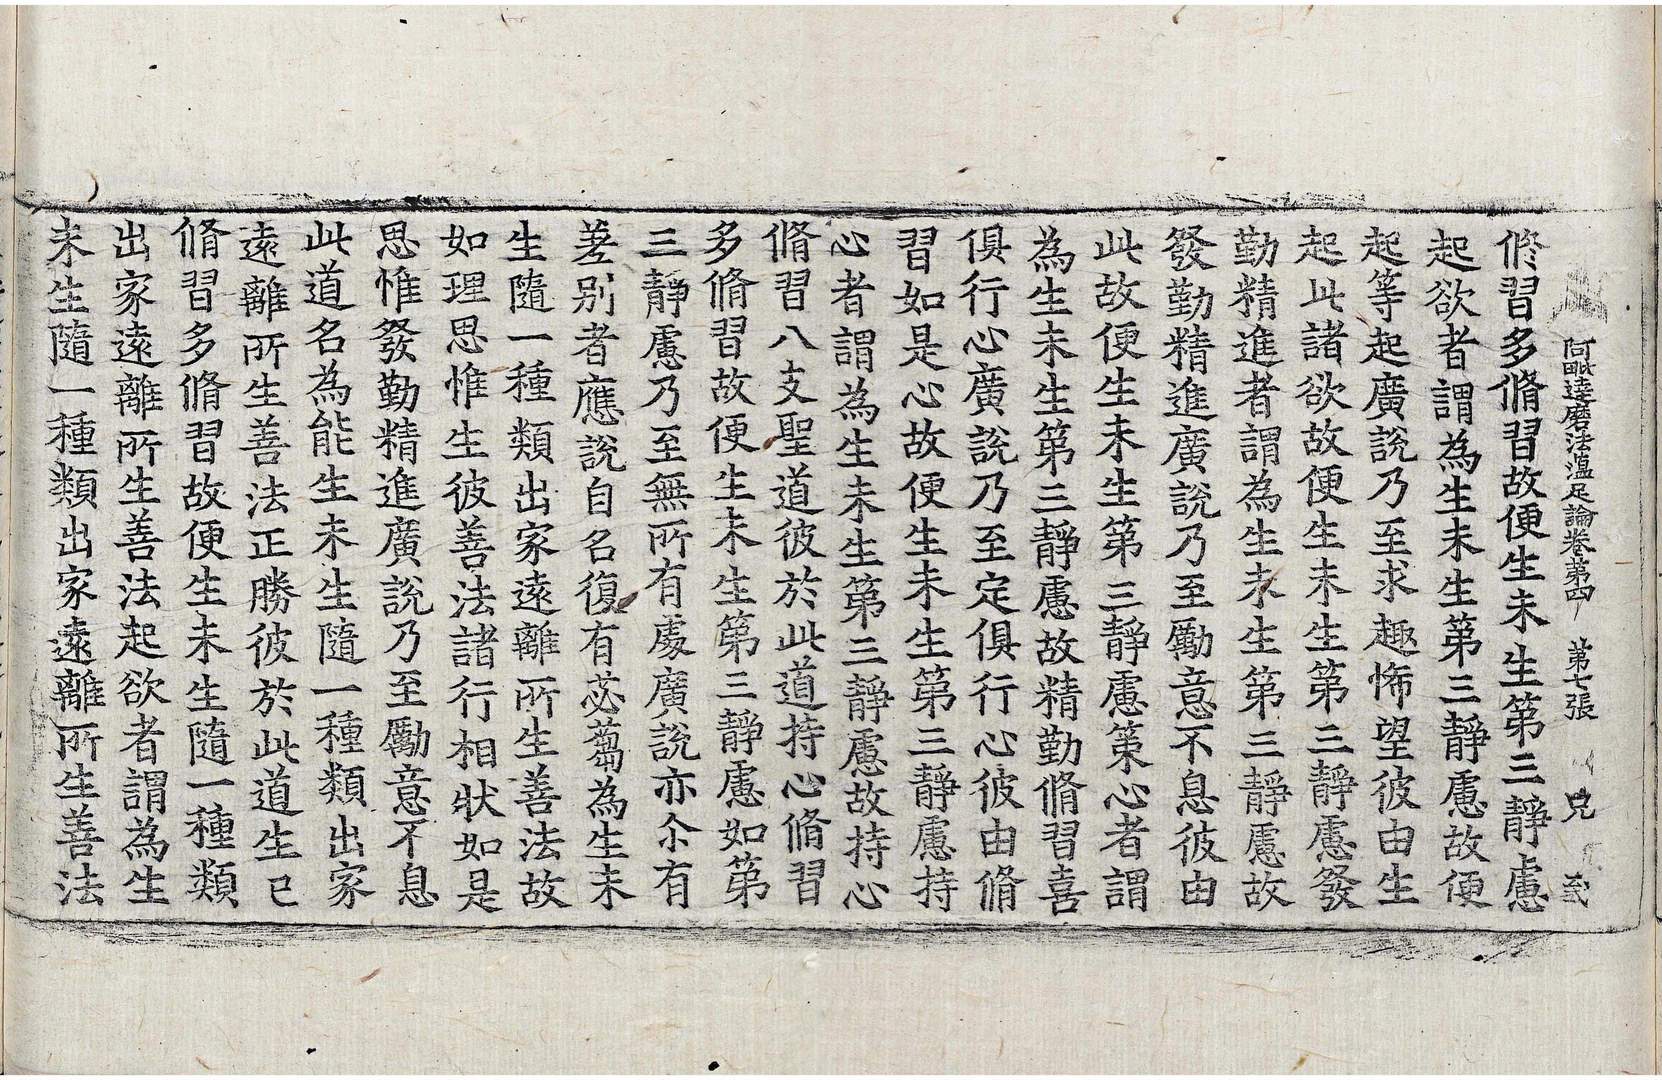 阿毗達磨法蘊足論卷第四 第七張 兄
脩習多脩習故便生未生第三靜慮
起欲者謂為生未生第三靜慮故便
起等起廣說乃至求趣悕望彼由生
起此諸欲故便生未生第三靜慮發
勤精進者謂為生未生第三靜慮故
發勤精進廣說乃至勵意不息彼由
此故便生未生第三靜慮策心者謂
為生未生第三靜慮故精勤脩習喜
俱行心廣說乃至定俱行心彼由脩
習如是心故便生未生第三靜慮持
心者謂為生未生第三靜慮故持心
脩習八支聖道彼於此道持心脩習
多脩習故便生未生第三靜慮如第
三靜慮乃至無所有處廣說亦尒有
差別者應說自名復有苾蒭為生未
生隨一種類出家遠離所生善法故
如理思惟生彼善法諸行相狀如是
思惟發勤精進廣說乃至勵意不息
此道名為能生未生隨一種類出家
遠離所生善法正勝彼於此道生已
脩習多脩習故便生未生隨一種類
出家遠離所生善法起欲者謂為生
未生隨一種類出家遠離所生善法